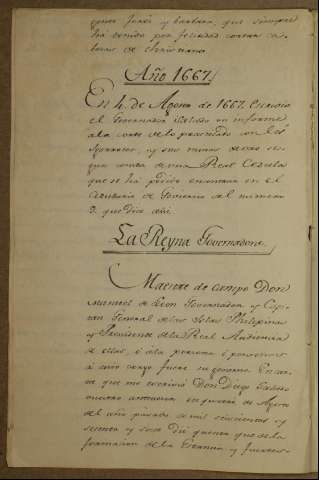 gente feróz y barbara, que siempre
ha tenido por felicidad cortar ca-
bezas de christianos.
Año 1667.
En 4. de Agosto de 1667. escrivio
el Governador Salcedo un informe
a la corte de lo practicado con los
Ygorrotes, y sus minas de oro se-
gun consta de una Real Cedula
que se ha podido encontrar en el
Cedulario de Govierno al numero
3. que dice asi.
La Reyna Governadora.
Maestre de campo Don
Manuel de Leon Governador y Capi-
tan General de las Islas Philipinas
y Presidente de la Real Audiencia
de ellas, ó á la persona ó personas
á cuyo cargo fuere su govierno. En car-
ta que me escrivió Don Diego Salcedo
vuestro antecesor en quatro de Agosto
del año pasado de mil seiscientos y
sesenta y siete dió quenta que de la
formacion de la y fuerzas